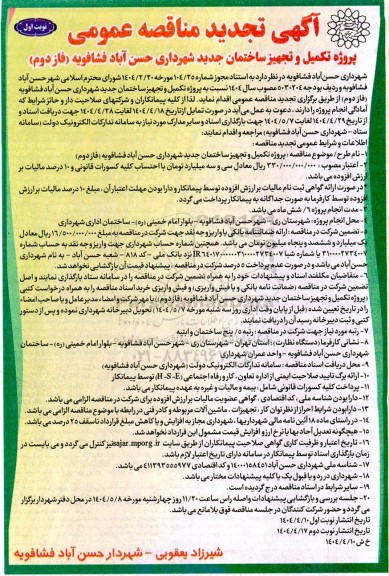 نوبت اول
آگهی تجدید مناقصه عمومی
پروژه تکمیل و تجهیز ساختمان جدید شهرداری حسن آباد فشافویه (فاز دوم)
شهرداری حسن آباد فشافویه در نظر دارد به استناد مجوز شماره ۱۰۴/۲۵ مورخه ۱۴۰۴/۲/۲۰ شورای محترم اسلامی شهر حسن آباد
فشافویه و ردیف بودجه ۵۰۳۰۲۰۴ مصوب سال ۱۴۰۴ نسبت به پروژه تکمیل و تجهیز ساختمان جدید شهرداری حسن آباد فشافویه
(فاز دوم) از طریق برگزاری تجدید مناقصه عمومی اقدام نماید. لذا از کلیه پیمانکاران و شرکتهای صلاحیت دار و حائز شرایط که
آمادگی انجام پروژه را دارند، دعوت به عمل می آید در صورت تمایل از تاریخ ۱۴۰۴/۴/۱۸ لغایت ۱۴۰۴/۴/۲۸ جهت دریافت اسناد و
از تاریخ ۱۴۰۴/۴/۲۹ لغایت ۱۴۰۴/۵/۷ جهت بارگذاری اسناد و سایر مدارک مورد نیاز به سامانه تدارکات الکترونیک دولت (سامانه
ستاد - شهرداری حسن آباد فشافویه) مراجعه و اقدام نمایند:
اطلاعات و شرایط عمومی تجدید مناقصه:
۱- نام طرح / موضوع مناقصه: پروژه تکمیل و تجهیز ساختمان جدید شهرداری حسن آباد فشافویه (فاز دوم)
۲- اعتبار مصوب: ۳۳۰/۰۰۰/۰۰۰/۰۰۰ ریال معادل سی و سه میلیارد تومان با احتساب کلیه کسورات قانونی و ۱۰ درصد مالیات بر
ارزش افزوده می باشد.
۳- در صورت ارائه گواهی ثبت نام مالیات بر ارزش افزوده توسط پیمانکار و دارا بودن مهلت اعتبار آن، مبلغ ۱۰ درصد مالیات بر ارزش
افزوده توسط کارفرما به صورت جداگانه به پیمانکار پرداخت می گردد.
۴- مدت انجام پروژه: ۶/ شش ماه می باشد.
۵- محل انجام پروژه: شهرستان ری - شهر حسن آباد فشافویه - بلوار امام خمینی (ره) - ساختمان اداری شهرداری
۶- تضمین شرکت در مناقصه: ارائه ضمانتنامه بانکی یا واریز وجه نقد جهت شرکت در مناقصه به مبلغ ۱۶/۵۰۰/۰۰۰/۰۰۰ ریال معادل
یک میلیارد و ششصد و پنجاه میلیون تومان می باشد. همچنین شماره حساب شهرداری جهت واریز وجه نقد به حساب شماره
حسن آباد می باشد و در صورت عدم پرداخت ۵ درصد شرکت در مناقصه، پیشنهاد قیمت آن بازگشایی نخواهد شد.
۷- متقاضیان مکلفند اسناد و پیشنهادات خود را به همراه تضمین شرکت در مناقصه را در سامانه ستاد بارگذاری نمایند و اصل
تضمین شرکت در مناقصه (ضمانت نامه بانکی و یا فیش واریزی) و فیش واریزی خرید اسناد مناقصه را به همراه درخواست کتبی
(پروژه تکمیل و تجهیز ساختمان جدید شهرداری حسن آباد فشافویه (فاز دوم)) با مهر شرکت و امضاء مدیرعامل و یا صاحب امضاء
را در تاریخ تعیین شده (قبل از پایان وقت اداری روز سه شنبه مورخه ۱۴۰۴/۵/۷) تحویل دبیرخانه شهرداری نموده و پس از دستور
کتبی و ثبت دبیرخانه رسید آن را دریافت نمایند.
۸- رتبه مورد نیاز جهت شرکت در مناقصه: رتبه ۵/ پنج ساختمان و ابنیه
۸- نشانی کارفرما (دستگاه نظارت): استان تهران - شهرستان ری - شهر حسن آباد فشافویه - بلوار امام خمینی (ره) - ساختمان
شهرداری حسن آباد فشافویه - واحد عمران شهرداری
۹- محل دریافت اسناد مناقصه: سامانه تدارکات الکترونیک دولت (شهرداری حسن آباد فشافویه)
۱۰- ارائه برگ تایید صلاحیت ایمنی از اداره تعاون، کار و رفاه اجتماعی (H-S-E) توسط پیمانکار
۱۱- پرداخت کلیه کسورات قانونی شامل: بیمه و مالیات و غیره به عهده پیمانکار می باشد.
۱۲- دارا بودن شناسه ملی، کد اقتصادی، گواهی عضویت مالیات بر ارزش افزوده برای شرکت در مناقصه الزامی می باشد.
۱۳- دارا بودن شرایط احراز از نظر توان کار، تجهیزات، ماشین آلات مربوطه و کادر فنی در رابطه با موضوع مناقصه الزامی می باشد.
۱۴- در راستای ماده ۱۸ آئین نامه مالی شهرداریها، شهرداری مجاز به افزایش و یا کاهش مبلغ قرارداد تا سقف ۲۵ درصد می باشد.
۱۵- هیچگونه تعدیل، آحاد بها یا نرخ ارز و افزایش قیمت مشمول این قرارداد نخواهد شد.
۱۶- تاریخ اعتبار و ظرفیت کاری گواهی صلاحیت پیمانکاران از طریق سایت sajar.mporg.ir نیز کنترل می گردد و می بایست در
زمان بارگذاری اسناد توسط پیمانکار در سامانه دارای تاریخ اعتبار لازم باشد.
۱۷- شناسه ملی شهرداری حسن آباد ۱۴۰۰۰۱۵۸۴۵۱ و کد اقتصادی ۴۱۱۳۹۳۵۵۵۹۷۷ می باشد.
۱۸- شهرداری در رد و یا قبول یک یا کلیه پیشنهادات مختار می باشد.
۱۹- سایر شرایط در اسناد مناقصه درج گردیده است.
۲۰- جلسه بررسی و بازگشایی پیشنهادات واصله راس ساعت ۱۱/۲۰ روز چهارشنبه مورخه ۱۴۰۴/۵/۸ در محل دفتر شهردار برگزار
می گردد و حضور شرکت کنندگان در جلسه مناقصه فوق بلامانع می باشد.
تاریخ انتشار نوبت اول: ۱۴۰۴/۴/۱۰
تاریخ انتشار نوبت دوم: ۱۴۰۴/۴/۱۷
خ ش: ۱۴۰۴/۴/۱۰
شیرزاد یعقوبی - شهردار حسن آباد فشافویه